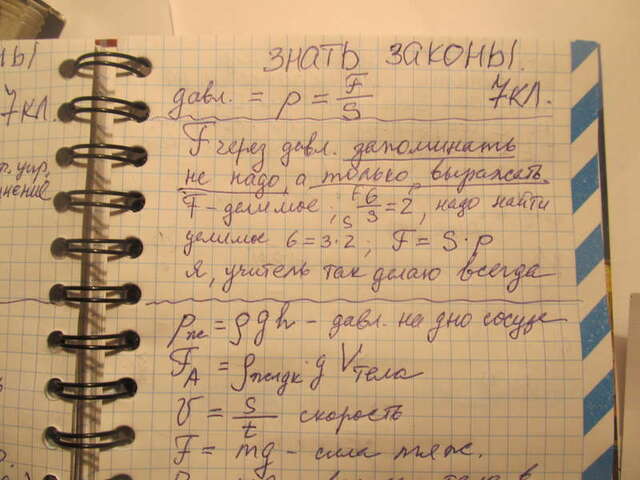 ны
7кл.
ЗНАТЬ ЗАКОНЫ.
7кл.
давл. = p = F/S
F через давл. запоминать
не надо, а только выражать.
F - делимое; F 6 / S 3 = 2 p, надо найти
делимое 6 = 3·2; F = S·p
Я, учитель так делаю всегда
pж = ρgh - давл. на дно сосуда
FA = ρжидк·g Vтела
v = s/t скорость
F = mg - сила тяж.